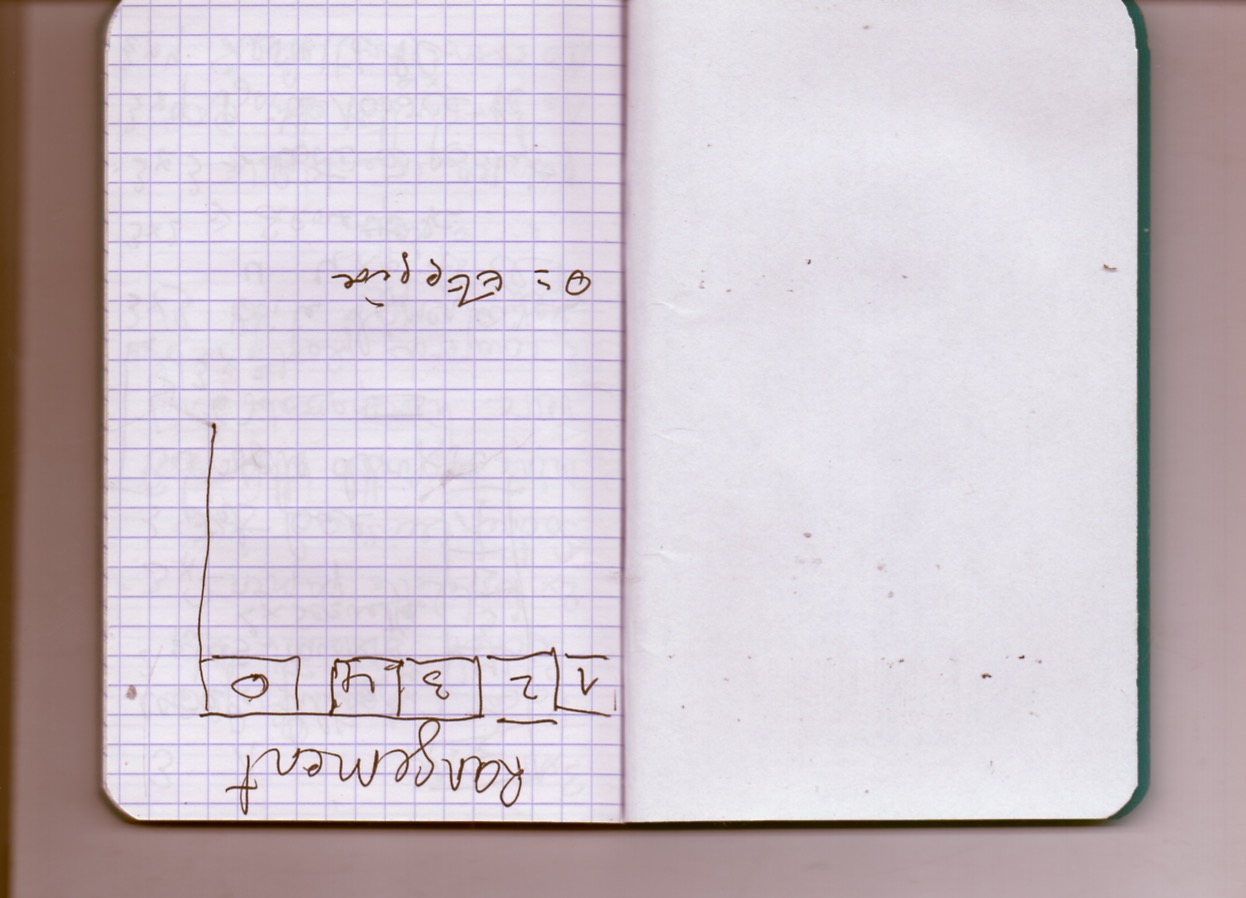 Rangement
1 2 3 4 0
0 = étagère